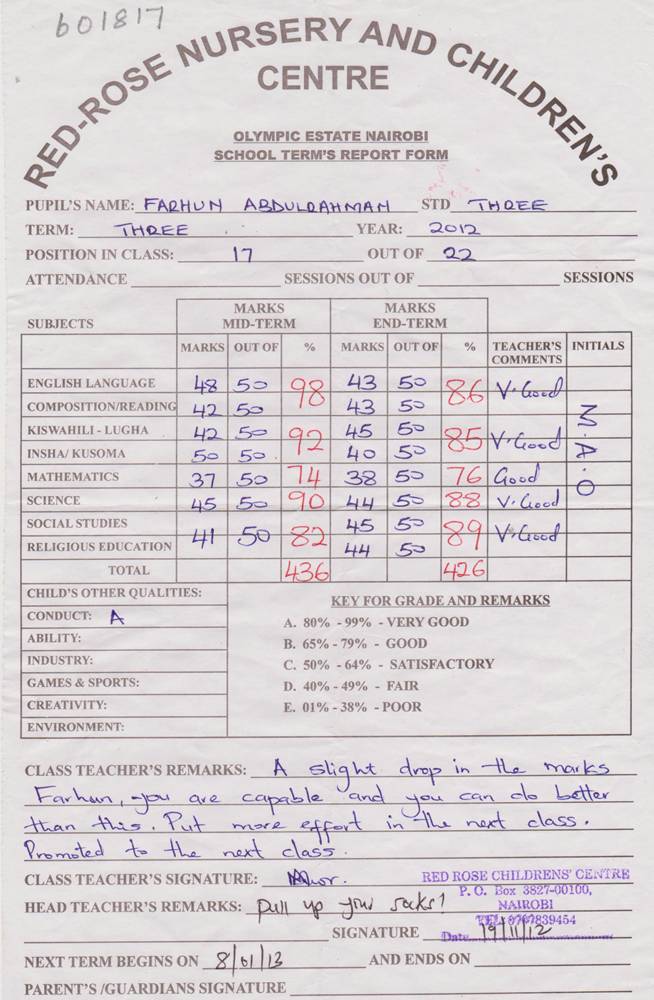 601817
RED-ROSE NURSERY AND CHILDREN'S
CENTRE
OLYMPIC ESTATE NAIROBI
SCHOOL TERM'S REPORT FORM
PUPIL'S NAME: FARHUN ABDULRAHMAN STD THREE
TERM: THREE YEAR: 2012
POSITION IN CLASS: 17 OUT OF 22
ATTENDANCE SESSIONS OUT OF SESSIONS
SUBJECTS MARKS MID-TERM MARKS END-TERM
MARKS OUT OF % MARKS OUT OF % TEACHER'S COMMENTS INITIALS
ENGLISH LANGUAGE 48 50 98 43 50 86 V. Good M.A.O
COMPOSITION/READING 42 50 43 50
KISWAHILI - LUGHA 42 50 92 45 50 85 V. Good
INSHA/ KUSOMA 50 50 40 50
MATHEMATICS 37 50 74 38 50 76 Good
SCIENCE 45 50 90 44 50 88 V. Good
SOCIAL STUDIES 41 50 82 45 50 89 V. Good
RELIGIOUS EDUCATION 44 50
TOTAL 436 426
CHILD'S OTHER QUALITIES:
CONDUCT: A
ABILITY:
INDUSTRY:
GAMES & SPORTS:
CREATIVITY:
ENVIRONMENT:
KEY FOR GRADE AND REMARKS
A. 80% - 99% - VERY GOOD
B. 65% - 79% - GOOD
C. 50% - 64% - SATISFACTORY
D. 40% - 49% - FAIR
E. 01% - 38% - POOR
CLASS TEACHER'S REMARKS: A slight drop in the marks
Farhun, you are capable and you can do better
than this. Put more effort in the next class.
Promoted to the next class.
CLASS TEACHER'S SIGNATURE:
RED ROSE CHILDRENS' CENTRE
P. O. Box 3827-00100,
NAIROBI
HEAD TEACHER'S REMARKS: Pull up your socks!
SIGNATURE
Date 19/11/12
NEXT TERM BEGINS ON 8/01/13 AND ENDS ON
PARENT'S /GUARDIANS SIGNATURE